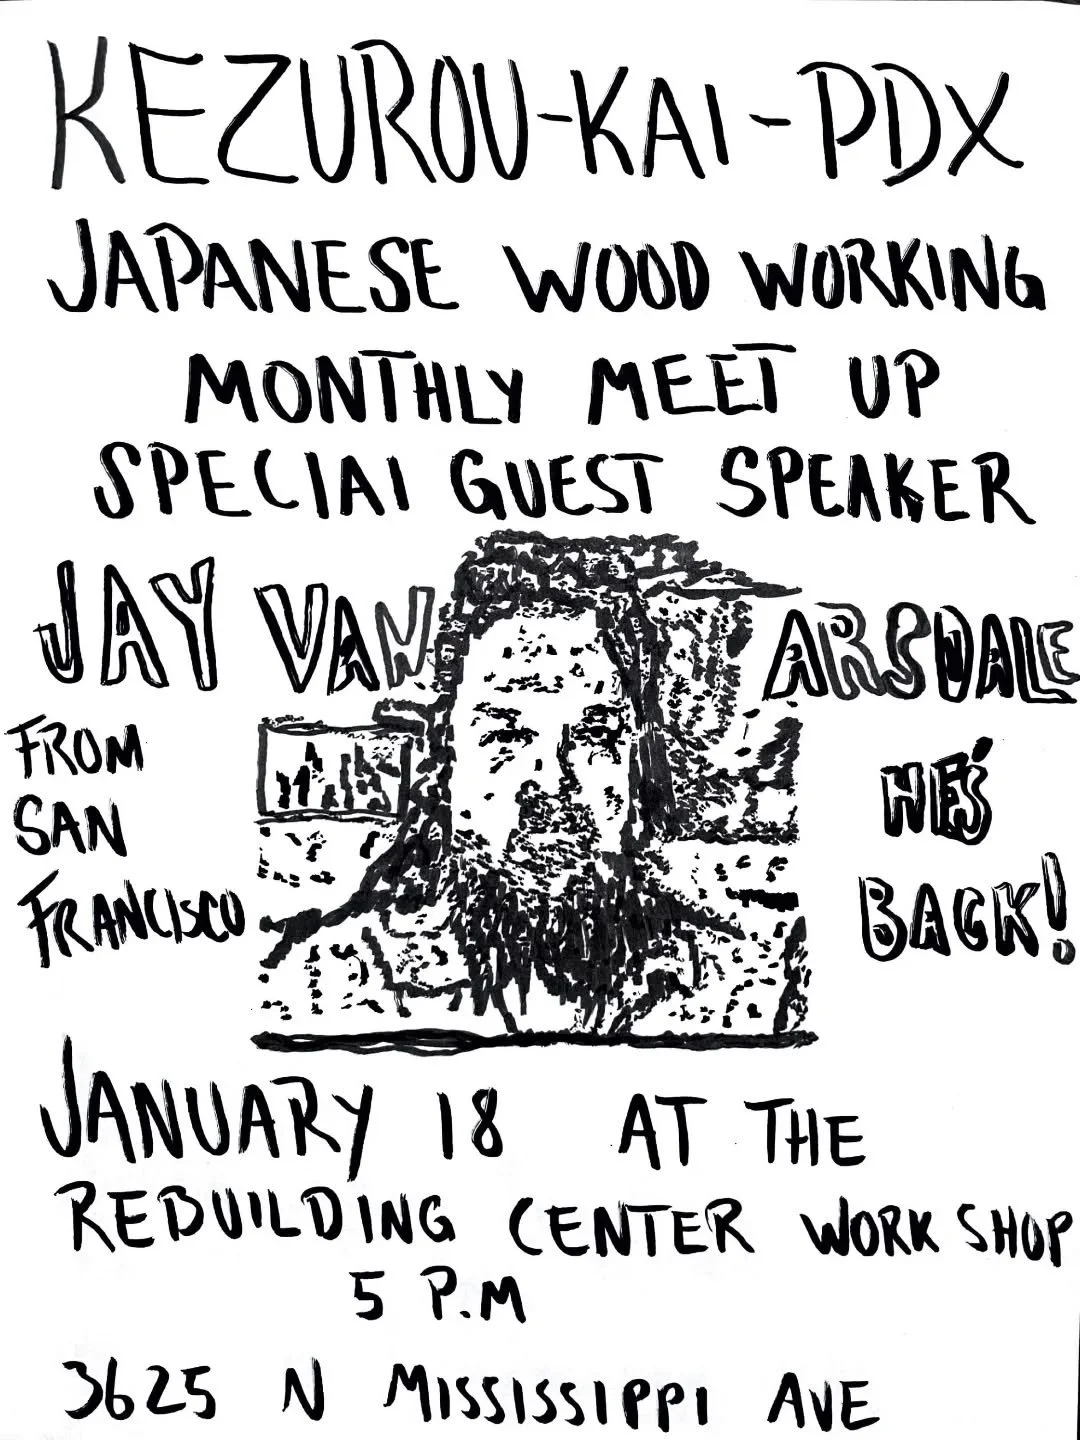 KEZUROU-KAI-PDX
JAPANESE WOOD WORKING
MONTHLY MEET UP
SPECIAl GUEST SPEAKER
JAY VAN ARSDALE
FROM
SAN
FRANCISCO
HE'S
BACK!
JANUARY 18 AT THE
REBUILDING CENTER WORK SHOP
5 P.M
3625 N MISSISSIPPI AVE